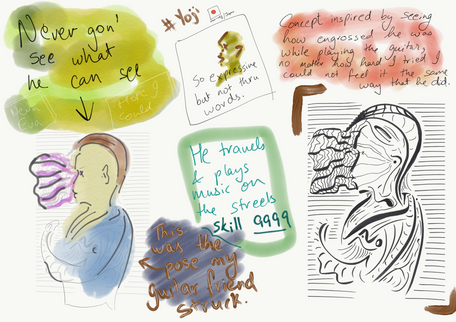 Never gon'
see what
he can see
# Yoji
So expressive
but not thru
words.
Concept inspired by seeing
how engrossed he was
while playing the guitar,
no matter how hard I tried I
could not feel it the same
way that he did.
He travels
& plays
music on
the streets
Skill 9999
This
was the
pose my
guitar friend
struck.